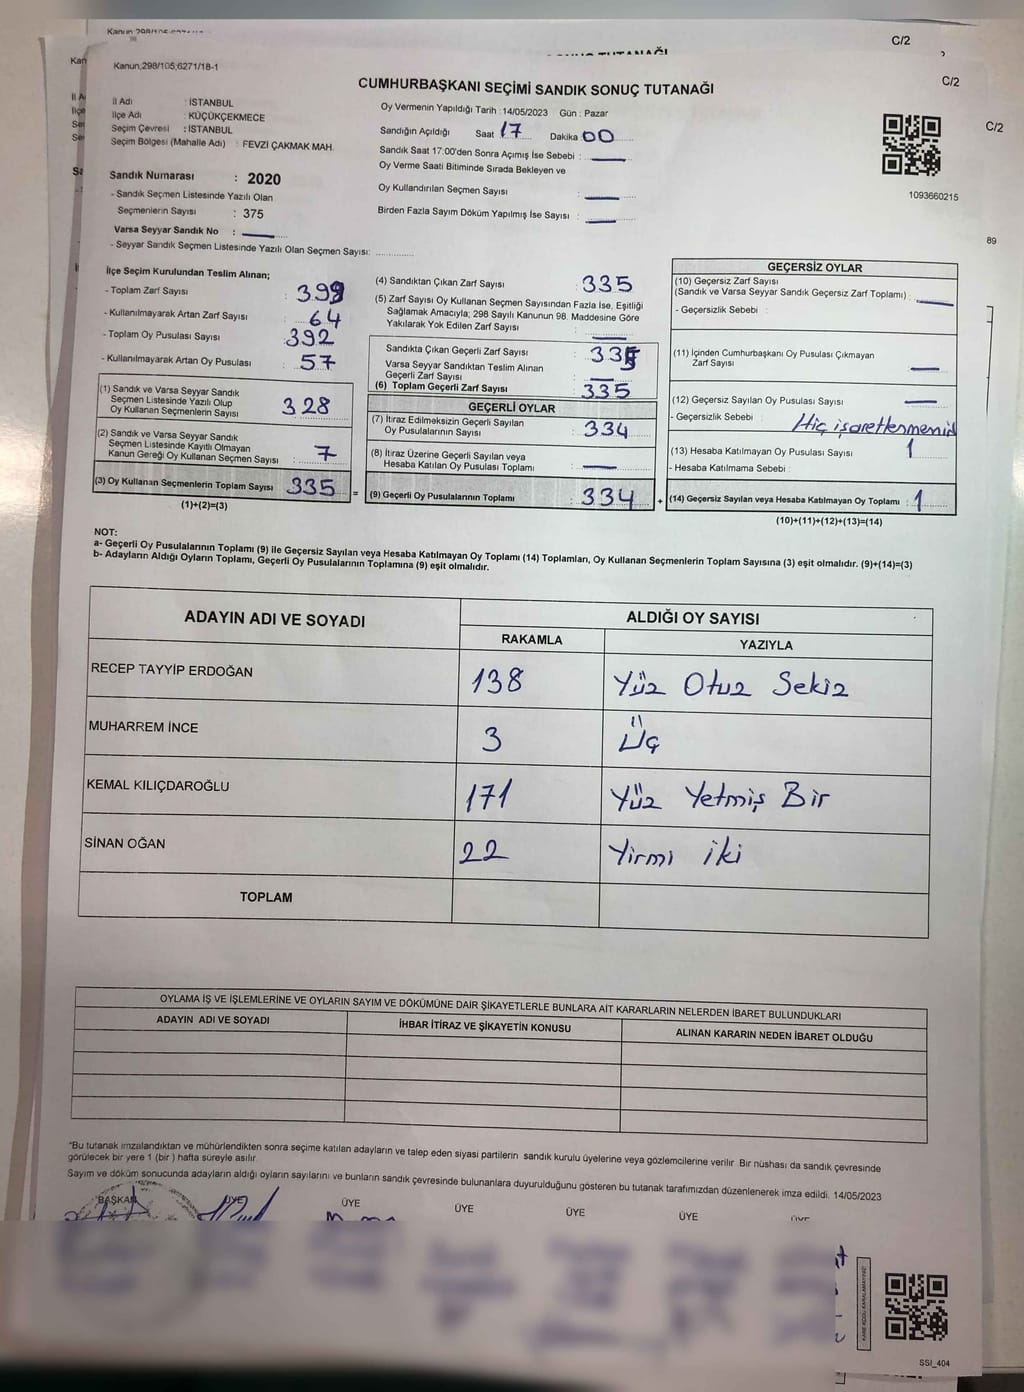 Kanun 298/105
C/2
Kanun;298/105;6271/18-1
C/2
C/2
CUMHURBAŞKANI SEÇİMİ SANDIK SONUÇ TUTANAĞI
İl Adı : İSTANBUL
İlçe Adı : KÜÇÜKÇEKMECE
Seçim Çevresi : İSTANBUL
Seçim Bölgesi (Mahalle Adı) : FEVZİ ÇAKMAK MAH.
Sandık Numarası : 2020
- Sandık Seçmen Listesinde Yazılı Olan
Seçmenlerin Sayısı : 375
Varsa Seyyar Sandık No :
- Seyyar Sandık Seçmen Listesinde Yazılı Olan Seçmen Sayısı:
Oy Vermenin Yapıldığı Tarih : 14/05/2023 Gün : Pazar
Sandığın Açıldığı Saat 17 Dakika 00
Sandık Saat 17:00'den Sonra Açımış İse Sebebi :
Oy Verme Saati Bitiminde Sırada Bekleyen ve
Oy Kullandırılan Seçmen Sayısı :
Birden Fazla Sayım Döküm Yapılmış İse Sayısı :
1093660215
89
İlçe Seçim Kurulundan Teslim Alınan;
- Toplam Zarf Sayısı : 399
- Kullanılmayarak Artan Zarf Sayısı : 64
- Toplam Oy Pusulası Sayısı : 392
- Kullanılmayarak Artan Oy Pusulası : 57
(1) Sandık ve Varsa Seyyar Sandık
Seçmen Listesinde Yazılı Olup
Oy Kullanan Seçmenlerin Sayısı 328
(2) Sandık ve Varsa Seyyar Sandık
Seçmen Listesinde Kayıtlı Olmayan
Kanun Gereği Oy Kullanan Seçmen Sayısı : 7
(3) Oy Kullanan Seçmenlerin Toplam Sayısı 335
(1)+(2)=(3)
(4) Sandıktan Çıkan Zarf Sayısı : 335
(5) Zarf Sayısı Oy Kullanan Seçmen Sayısından Fazla İse, Eşitliği
Sağlamak Amacıyla; 298 Sayılı Kanunun 98. Maddesine Göre
Yakılarak Yok Edilen Zarf Sayısı :
Sandıkta Çıkan Geçerli Zarf Sayısı : 335
Varsa Seyyar Sandıktan Teslim Alınan
Geçerli Zarf Sayısı :
(6) Toplam Geçerli Zarf Sayısı : 335
GEÇERLİ OYLAR
(7) İtiraz Edilmeksizin Geçerli Sayılan
Oy Pusulalarının Sayısı : 334
(8) İtiraz Üzerine Geçerli Sayılan veya
Hesaba Katılan Oy Pusulası Toplamı :
= (9) Geçerli Oy Pusulalarının Toplamı : 334
GEÇERSİZ OYLAR
(10) Geçersiz Zarf Sayısı
(Sandık ve Varsa Seyyar Sandık Geçersiz Zarf Toplamı) :
- Geçersizlik Sebebi :
(11) İçinden Cumhurbaşkanı Oy Pusulası Çıkmayan
Zarf Sayısı :
(12) Geçersiz Sayılan Oy Pusulası Sayısı :
- Geçersizlik Sebebi : Hiç işaretlenmemiş
(13) Hesaba Katılmayan Oy Pusulası Sayısı : 1
- Hesaba Katılmama Sebebi :
+ (14) Geçersiz Sayılan veya Hesaba Katılmayan Oy Toplamı : 1
(10)+(11)+(12)+(13)=(14)
NOT:
a- Geçerli Oy Pusulalarının Toplamı (9) ile Geçersiz Sayılan veya Hesaba Katılmayan Oy Toplamı (14) Toplamları, Oy Kullanan Seçmenlerin Toplam Sayısına (3) eşit olmalıdır. (9)+(14)=(3)
b- Adayların Aldığı Oyların Toplamı, Geçerli Oy Pusulalarının Toplamına (9) eşit olmalıdır.
ADAYIN ADI VE SOYADI ALDIĞI OY SAYISI
RAKAMLA YAZIYLA
RECEP TAYYİP ERDOĞAN 138 Yüz Otuz Sekiz
MUHARREM İNCE 3 Üç
KEMAL KILIÇDAROĞLU 171 Yüz Yetmiş Bir
SİNAN OĞAN 22 Yirmi iki
TOPLAM
OYLAMA İŞ VE İŞLEMLERİNE VE OYLARIN SAYIM VE DÖKÜMÜNE DAİR ŞİKAYETLERLE BUNLARA AİT KARARLARIN NELERDEN İBARET BULUNDUKLARI
ADAYIN ADI VE SOYADI İHBAR İTİRAZ VE ŞİKAYETİN KONUSU ALINAN KARARIN NEDEN İBARET OLDUĞU
*Bu tutanak imzalandıktan ve mühürlendikten sonra seçime katılan adayların ve talep eden siyasi partilerin sandık kurulu üyelerine veya gözlemcilerine verilir. Bir nüshası da sandık çevresinde
görülecek bir yere 1 (bir) hafta süreyle asılır.
Sayım ve döküm sonucunda adayların aldığı oyların sayılarını ve bunların sandık çevresinde bulunanlara duyurulduğunu gösteren bu tutanak tarafımızdan düzenlenerek imza edildi. 14/05/2023
BAŞKAN ÜYE ÜYE ÜYE ÜYE ÜYE ÜYE
KARE KODU KARALAMAYINIZ
SSI_404